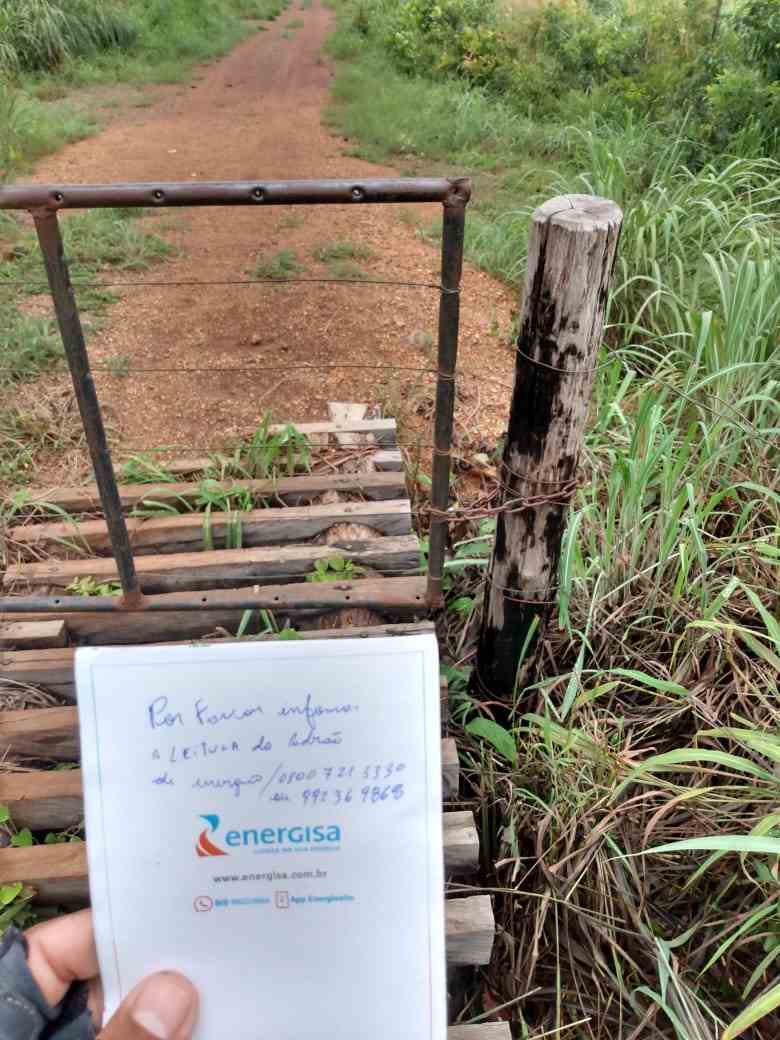 Por Favor informar
a LEITURA do Padrão
de energia / 0800 721 3330
ou 99236 9868
energisa
www.energisa.com.br
App Energisa On